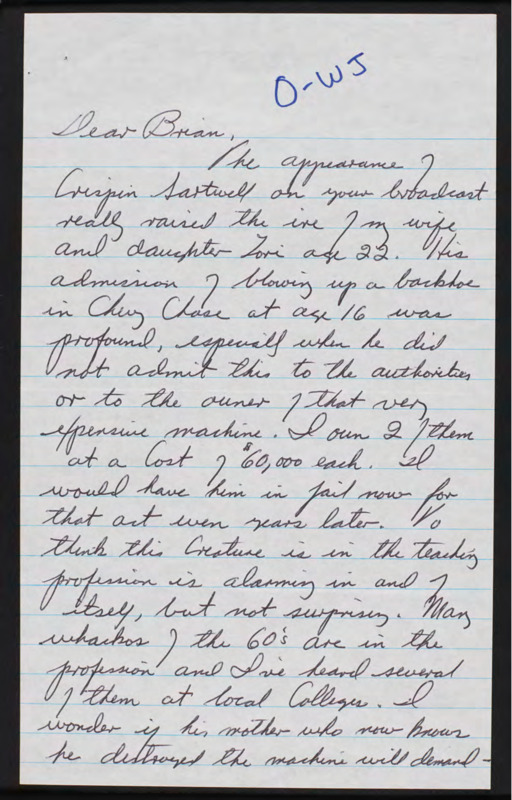 O-WJ
Dear Brian,
The appearance of
Crispin Sartwell on your broadcast
really raised the ire of my wife
and daughter Lori age 22. His
admission of blowing up a backhoe
in Chevy Chase at age 16 was
profound, especially when he did
not admit this to the authorities
or to the owner of that very
expensive machine. I own 2 of them
at a Cost of $60,000 each. I
would have him in jail now for
that act even years later. To
think this Creature is in the teaching
profession is alarming in and of
itself, but not surprising. Many
whackos of the 60's are in the
profession and I've heard several
of them at local Colleges. I
wonder if his mother who now knows
he destroyed the machine will demand-